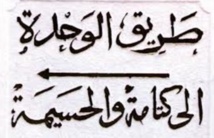 طريق الوحدة
الى كتامة والحسيمة